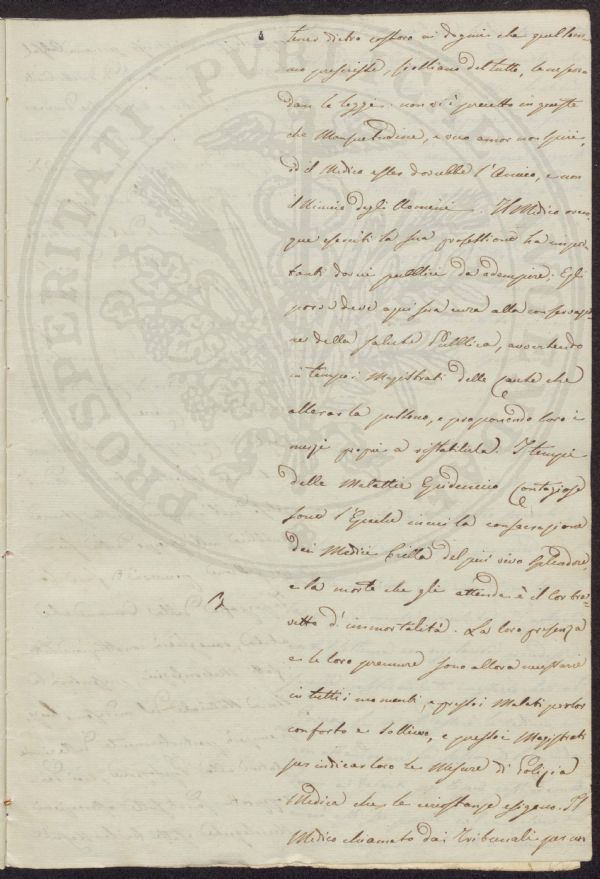 PROSPERITATI PUBLICAE
tener dietro costoro ai dogmi che quel som-
mo prescriste, scolliano del tutto,
dare le leggi: non vi è precetto in queste
che Mansuetudine, e vivo amor non spiri,
ed il Medico esser dovrebbe l'Amico, e non
il Nimico degli Uomini. Il Medico ovun-
que eserciti la sua professione ha impor-
tanti doveri pubblici da adempire; Egli
porre deve ogni sua cura alla conservazio-
ne della Salute Pubblica, avvertendo
in tempo i Magistrati delle Cause che
alterar la possono, e proponendo loro i
mezzi proprj a ristabilirla. I tempi
delle Malattie Epidemico Contagiose
sono l'Epoche in cui la consacrazione
dei Medici brilla del più vivo Splendore,
e la morte che gli attende è il
d'immortalità. La loro presenza
e le loro premure sono allora necessarie
in tutti i momenti, e presso i Malati per lor
conforto e sollievo, e presso i Magistrati
per indicar loro le Misure di Polizia
Medica che le circostanze esigono. Il
Medico chiamato dai Tribunali per un